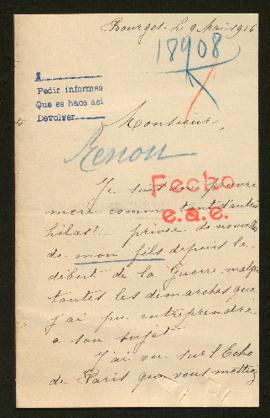 Bourges. Le 9 Mai 1916
18908
Pedir informes
Que se hacs asi
Devolver
Monsieur,
Renou
Fecho
e.a.e.
Je suis une pauvre
mere comme tant d'autres
hélas! privée de nouvelles
de mon fils depuis le
début de la Guerre, malgré
toutes les demarches que
j'ai pu entreprendre
a son sujet
J'ai vu sur l'Echo
de Paris que vous mettiez